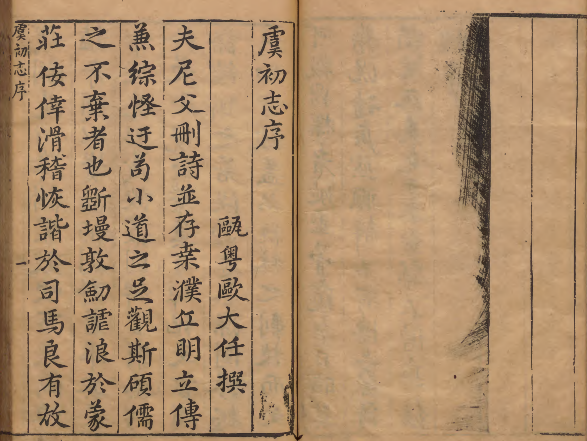 虞初志序
甌粵歐大任撰
夫尼父刪詩並存桒濮丘明立傳
兼綜怪迂苟小道之足觀斯碩儒
之不棄者也斵墁敦劒謔浪於蒙
莊佞倖滑稽恢諧於司馬良有放
虞初志序 一